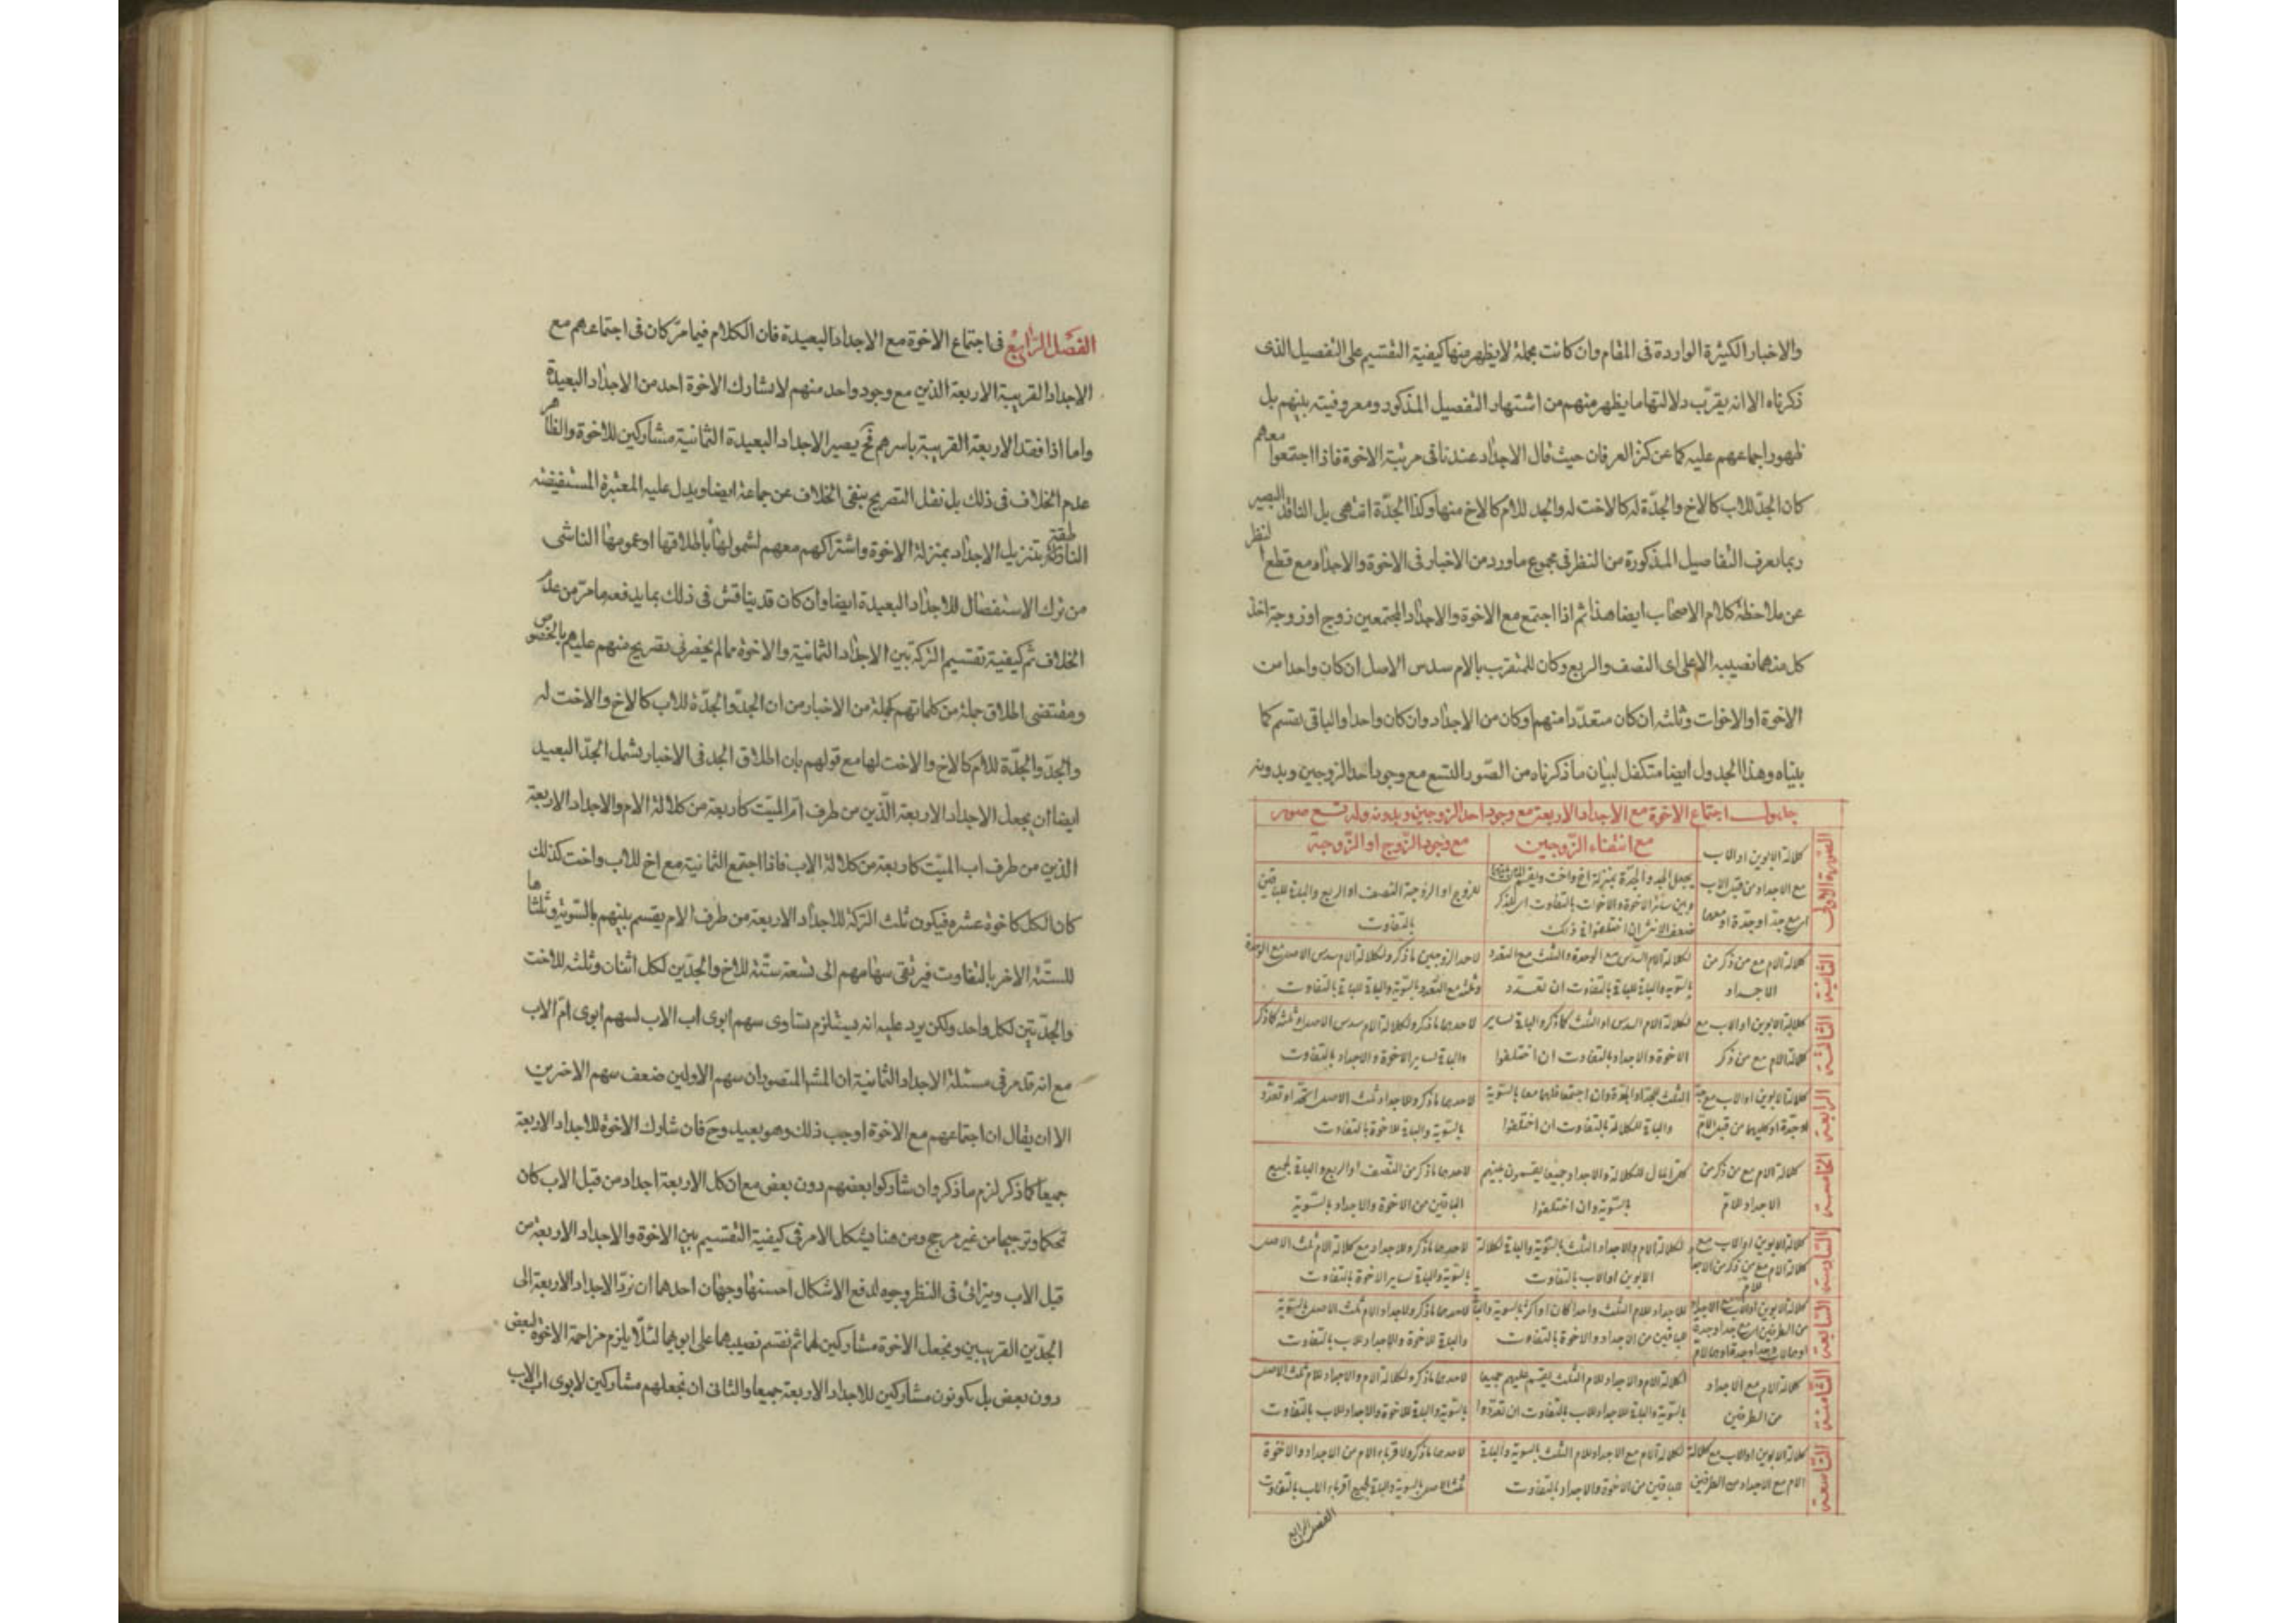 والاخبار الكثيرة الواردة فى المقام وان كانت مجملة لا يظهر منها كيفية التقسيم على التفصيل الذى
ذكرناه الا انه يقرّب دلالتها ما يظهر منهم من اشتهار التفصيل المذكور ومعروفيته بينهم بل
ظهور اجماعهم عليه كما عن كنز العرفان حيث قال الاجداد عندنا فى مرتبة الاخوة فاذا اجتمعوا معهم
كان الجدّ للاب كالاخ والجدّة له كالاخت له والجد للام كالاخ منها وكذا الجدّة انتهى بل الناقد البصير
ربما يعرف التفاصيل المذكورة من النظر فى مجموع ما ورد من الاخبار فى الاخوة والاجداد مع قطع النظر
عن ملاحظة كلام الاصحاب ايضا هذا ثم اذا اجتمع مع الاخوة والاجداد المجتمعين زوج او زوجة اخذ
كل منهما نصيبه الاعلى اى النصف والربع وكان للمتقرب بالام سدس الاصل ان كان واحدا من
الاخوة او الاخوات وثلثه ان كان متعدّدا منهم او كان من الاجداد وان كان واحدا والباقى يقسم كما
بيّناه وهذا الجدول ايضا متكفل لبيان ما ذكرناه من الصّور التسع مع وجود احد الزوجين وبدونه
جدول اجتماع الاخوة مع الاجداد الاربعة مع وجود احد الزوجين وبدونه وله تسع صور
مع انتفاء الزّوجين
مع وجود الزّوج او الزّوجة
الصّورة الاولى
كلالة الابوين او الاب
مع الاجداد من قبل الاب
اى مع جدّ او جدّة او معهما
يجعل الجد والجدّة بمنزلة اخ واخت ويقسم
وبين سائر الاخوة والاخوات بالتفاوت اى للذكر
ضعف الانثى ان اختلفوا فى ذلك
للزوج او الزوجة النصف او الربع والباقى للباقين
بالتفاوت
الثانية
كلالة الام مع من ذكر من
الاجداد
لكلالة الام السدس مع الوحدة والثلث مع التعدد
بالسّويه والباقى للباقى بالتفاوت ان تعدّد
لاحد الزوجين ما ذكر ولكلالة الام سدس الاصل مع الوحدة
وثلثه مع التعدد بالسّوية والباقى للباقى بالتفاوت
الثالثة
كلالة الابوين او الاب مع
كلالة الام مع من ذكر
لكلالة الام السدس او الثلث كما ذكر والباقى لساير
الاخوة والاجداد بالتفاوت ان اختلفوا
لاحدهما ما ذكر ولكلالة الام سدس الاصل او ثلثه كما ذكر
والباقى لساير الاخوة والاجداد بالتفاوت
الرابعة
كلالة الابوين او الاب مع جد
او جدة او كليهما من قبل الام
الثلث للجد او الجدة وان اجتمعا فلهما معا بالسّوية
والباقى للكلالة بالتفاوت ان اختلفوا
لاحدهما ما ذكر وللاجداد ثلث الاصل اتّحد او تعدّد
بالسّوية والباقى للاخوة بالتفاوت
الخامسة
كلالة الام مع من ذكر من
الاجداد للام
كل المال للكلالة والاجداد جميعا يقسمون بينهم
بالسّوية وان اختلفوا
لاحدهما ما ذكر من النّصف او الربع والباقى لجميع
الباقين من الاخوة والاجداد بالسّوية
السّادسة
كلالة الابوين او الاب مع
كلالة الام مع من ذكر من الاجداد
للام
لكلالة الام والاجداد الثلث بالسّوية والباقى لكلالة
الابوين او الاب بالتفاوت
لاحدهما ما ذكر وللاجداد مع كلالة الام ثلث الاصل
بالسّوية والباقى لساير الاخوة بالتفاوت
السّابعة
كلالة الابوين او الاب مع الاجداد
من الطرفين اى مع جد او جدة
او هما لاب وجد او جدة او هما لام
للاجداد للام الثلث واحدا كان او اكثر بالسوية والباقى
للباقين من الاجداد والاخوة بالتفاوت
لاحدهما ما ذكر وللاجداد للام ثلث الاصل بالسّوية
والباقى للاخوة والاجداد للاب بالتفاوت
الثّامنة
كلالة الام مع الاجداد
من الطرفين
لكلالة الام والاجداد للام الثلث يقسم عليهم جميعا
بالسّوية والباقى للاجداد للاب بالتفاوت ان تعدّدوا
لاحدهما ما ذكر ولكلالة الام والاجداد للام ثلث الاصل
بالسّوية والباقى للاخوة والاجداد للاب بالتفاوت
التّاسعة
كلالة الابوين او الاب مع كلالة
الام مع الاجداد من الطرفين
لكلالة الام مع الاجداد للام الثلث بالسوية والباقى
للباقين من الاخوة والاجداد بالتفاوت
لاحدهما ما ذكر ولاقرباء الام من الاجداد والاخوة
ثلث الاصل بالسوية والباقى لجميع اقرباء الاب بالتفاوت
الفصل الرابع
الفصل الرابع فى اجتماع الاخوة مع الاجداد البعيدة فان الكلام فيما مرّ كان فى اجتماعهم مع
الاجداد القريبة الاربعة الذين مع وجود واحد منهم لا يشارك الاخوة احد من الاجداد البعيدة
واما اذا فقد الاربعة القريبة باسرهم فح يصير الاجداد البعيدة الثمانية مشاركين للاخوة والظاهر
عدم الخلاف فى ذلك بل نقل التصريح بنفى الخلاف عن جماعة ايضا ويدل عليه المعتبرة المستفيضه
الناطقة بتنزيل الاجداد بمنزلة الاخوة واشتراكهم معهم لشمولها باطلاقها او عمومها الناشى
من ترك الاستفصال للاجداد البعيدة ايضا وان كان قد يناقش فى ذلك بما يدفعه ما مرّ من عدم
الخلاف ثم كيفية تقسيم التركة بين الاجداد الثمانية والاخوة مما لم يحضرنى تصريح منهم عليهم بالخصوص
ومقتضى اطلاق جملة من كلماتهم كجملة من الاخبار من ان الجدّ والجدّة للاب كالاخ والاخت له
والجدّ والجدّة للام كالاخ والاخت لها مع قولهم بان اطلاق الجد فى الاخبار يشمل الجدّ البعيد
ايضا ان يجعل الاجداد الاربعة الّذين من طرف امّ الميّت كاربعة من كلالة الام والاجداد الاربعة
الذين من طرف اب الميّت كاربعة من كلالة الاب فاذا اجتمع الثمانية مع اخ للاب واخت كذلك
كان الكل كاخوة عشره فيكون ثلث التركة للاجداد الاربعة من طرف الام يقسم بينهم بالسّوية وثلثاها
للستّة الاخر بالتفاوت فيرتقى سهامهم الى تسعة ستّة للاخ والجدّين لكل اثنان وثلثه للاخت
والجدّتين لكل واحد ولكن يرد عليه انه يستلزم تساوى سهم ابوى اب الاب لسهم ابوى امّ الاب
مع انه قد مر فى مسئلة الاجداد الثمانية ان المشهور المنصور ان سهم الاولين ضعف سهم الاخرين
الا ان يقال ان اجتماعهم مع الاخوة اوجب ذلك وهو بعيد وح فان شارك الاخوة للاجداد الاربعة
جميعا كما ذكر لزم ما ذكر وان شاركوا بعضهم دون بعض مع ان كل الاربعة اجداد من قبل الاب كان
تحكما وترجيحا من غير مرجح ومن هنا يشكل الامر فى كيفية التقسيم بين الاخوة والاجداد الاربعة من
قبل الاب ويترائى فى النظر وجوه لدفع الاشكال احسنها وجهان احدهما ان نردّ الاجداد الاربعة الى
الجدّين القريبين ونجعل الاخوة مشاركين لهما ثم نقسم نصيبهما على ابويهما لئلّا يلزم مزاحمة الاخوة لبعض
دون بعض بل يكونون مشاركين للاجداد الاربعة جميعا والثانى ان نجعلهم مشاركين لابوى اب الاب